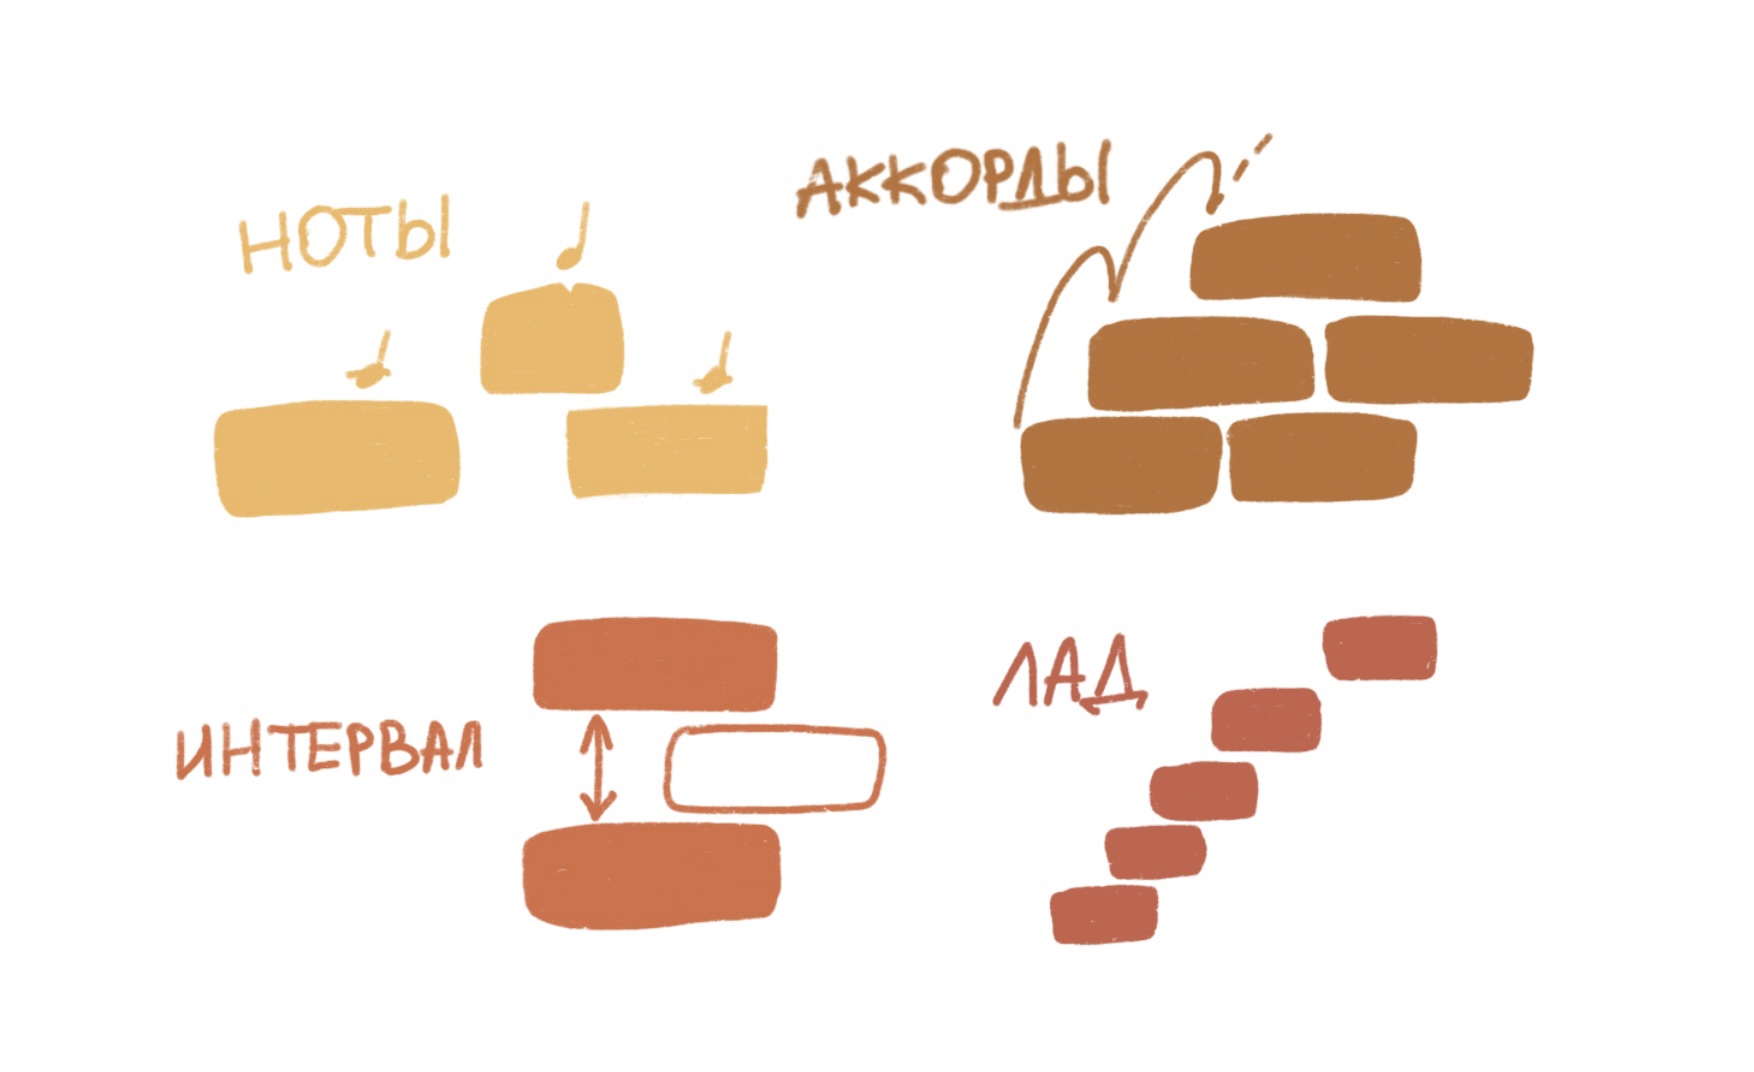 НОТЫ
АККОРДЫ
ИНТЕРВАЛ
ЛАД